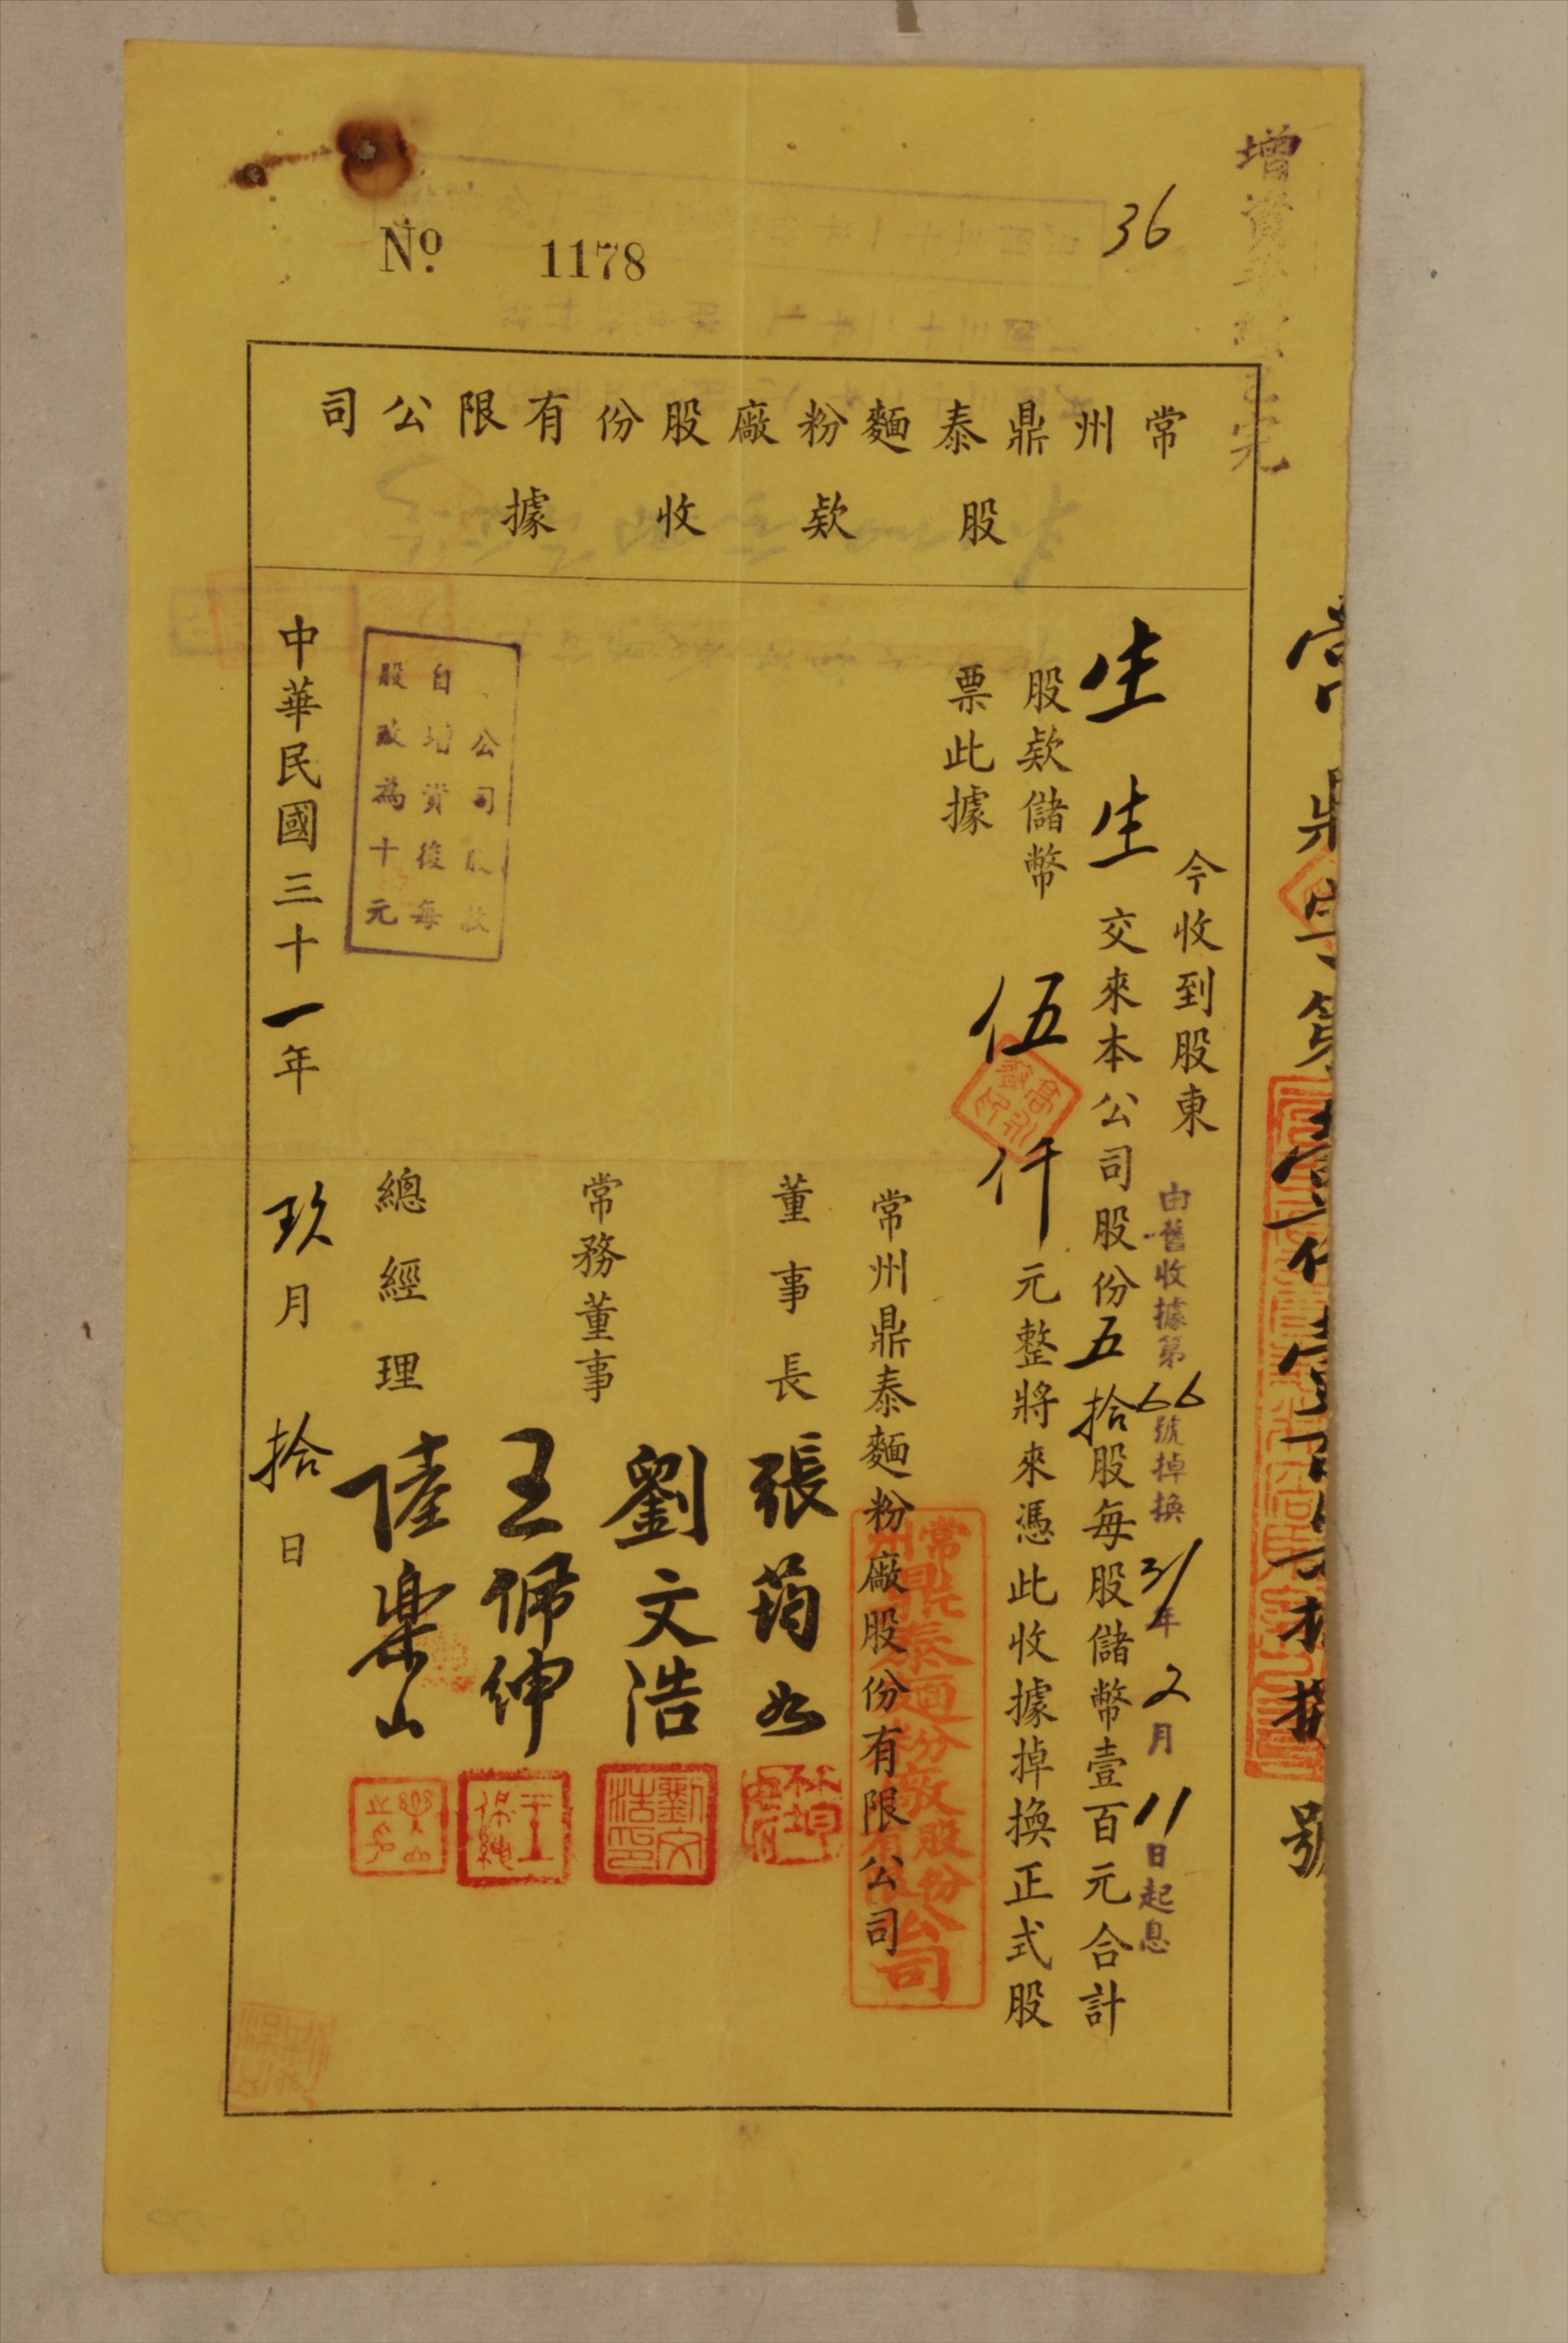 增資
完
36
No. 1178
常州鼎泰麵粉廠股份有限公司
股欵收據
今收到股東
由舊收據第66號掉換31年2月11日起息
生生交來本公司股份五拾股每股儲幣壹百元合計
股欵儲幣伍仟元整將來憑此收據掉換正式股
票此據
常州鼎泰麵粉廠股份有限公司
常州鼎泰麵粉廠股份有限公司
董事長 張筠如
常務董事 劉文浩
劉文浩印
王佩紳
總經理 陸樂山
公司股欵
自增資後每
股改為十元
中華民國三十一年玖月拾日